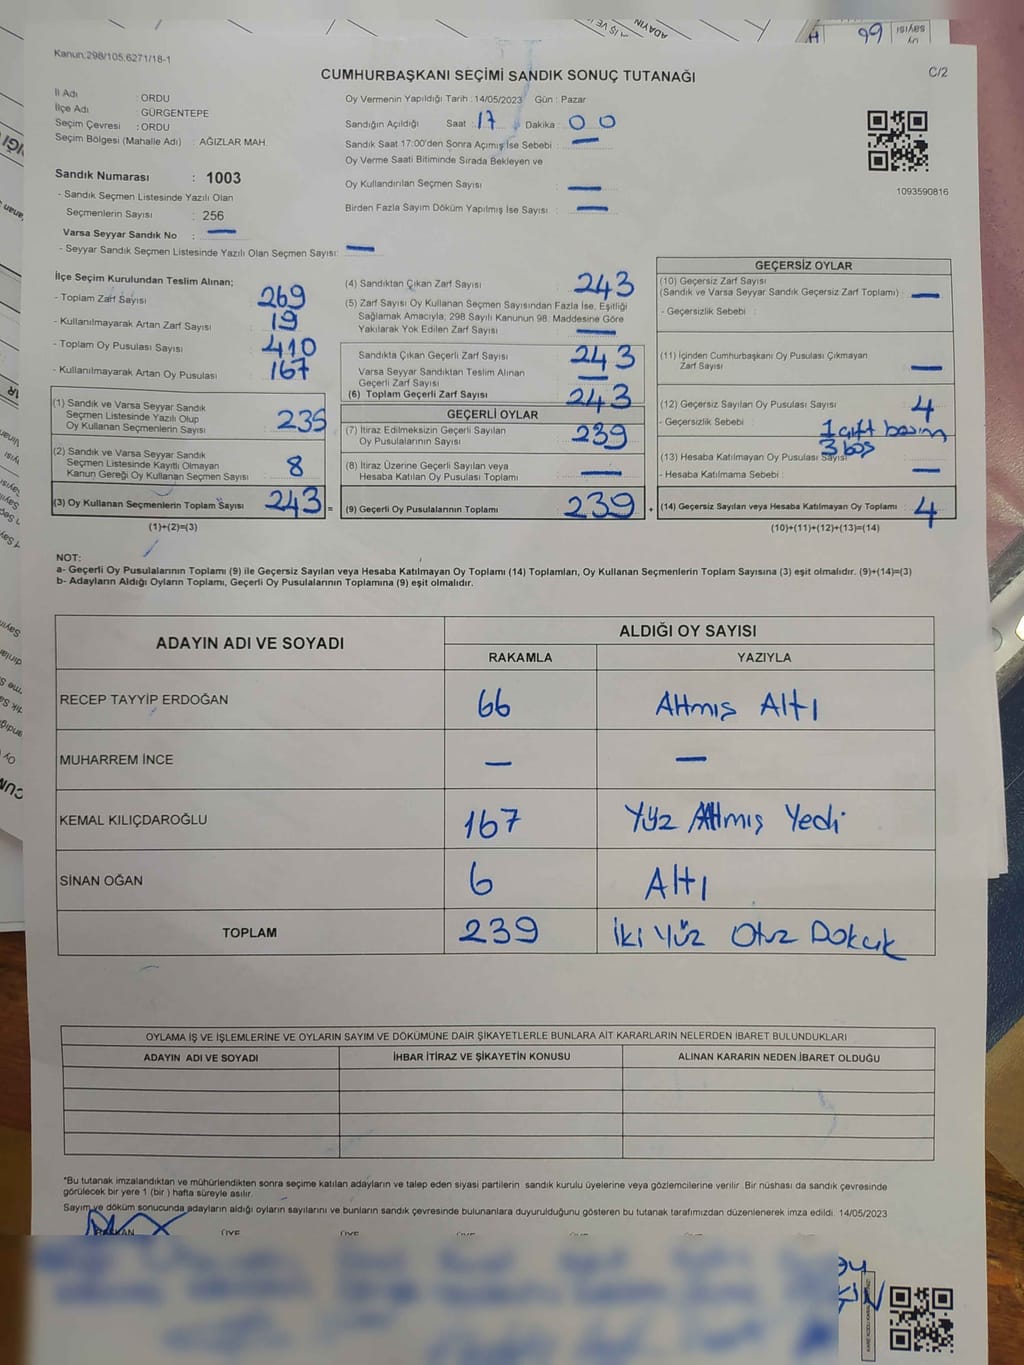 Kanun:298/105,6271/18-1
C/2
CUMHURBAŞKANI SEÇİMİ SANDIK SONUÇ TUTANAĞI
İl Adı : ORDU
İlçe Adı : GÜRGENTEPE
Seçim Çevresi : ORDU
Seçim Bölgesi (Mahalle Adı) : AĞIZLAR MAH.
Sandık Numarası : 1003
- Sandık Seçmen Listesinde Yazılı Olan
Seçmenlerin Sayısı : 256
Varsa Seyyar Sandık No : —
- Seyyar Sandık Seçmen Listesinde Yazılı Olan Seçmen Sayısı: —
Oy Vermenin Yapıldığı Tarih : 14/05/2023 Gün : Pazar
Sandığın Açıldığı Saat : 17 Dakika : 00
Sandık Saat 17:00'den Sonra Açımış İse Sebebi : —
Oy Verme Saati Bitiminde Sırada Bekleyen ve
Oy Kullandırılan Seçmen Sayısı —
Birden Fazla Sayım Döküm Yapılmış İse Sayısı : —
1093590816
İlçe Seçim Kurulundan Teslim Alınan;
- Toplam Zarf Sayısı 269
- Kullanılmayarak Artan Zarf Sayısı 19
- Toplam Oy Pusulası Sayısı 410
- Kullanılmayarak Artan Oy Pusulası 167
(1) Sandık ve Varsa Seyyar Sandık
Seçmen Listesinde Yazılı Olup
Oy Kullanan Seçmenlerin Sayısı 235
(2) Sandık ve Varsa Seyyar Sandık
Seçmen Listesinde Kayıtlı Olmayan
Kanun Gereği Oy Kullanan Seçmen Sayısı 8
(3) Oy Kullanan Seçmenlerin Toplam Sayısı 243 =
(1)+(2)=(3)
(4) Sandıktan Çıkan Zarf Sayısı 243
(5) Zarf Sayısı Oy Kullanan Seçmen Sayısından Fazla İse, Eşitliği
Sağlamak Amacıyla; 298 Sayılı Kanunun 98. Maddesine Göre
Yakılarak Yok Edilen Zarf Sayısı —
Sandıkta Çıkan Geçerli Zarf Sayısı 243
Varsa Seyyar Sandıktan Teslim Alınan
Geçerli Zarf Sayısı —
(6) Toplam Geçerli Zarf Sayısı 243
GEÇERLİ OYLAR
(7) İtiraz Edilmeksizin Geçerli Sayılan
Oy Pusulalarının Sayısı 239
(8) İtiraz Üzerine Geçerli Sayılan veya
Hesaba Katılan Oy Pusulası Toplamı —
(9) Geçerli Oy Pusulalarının Toplamı 239 +
GEÇERSİZ OYLAR
(10) Geçersiz Zarf Sayısı
(Sandık ve Varsa Seyyar Sandık Geçersiz Zarf Toplamı) : —
- Geçersizlik Sebebi :
(11) İçinden Cumhurbaşkanı Oy Pusulası Çıkmayan
Zarf Sayısı —
(12) Geçersiz Sayılan Oy Pusulası Sayısı 4
- Geçersizlik Sebebi : 1 çift basım
3 boş
(13) Hesaba Katılmayan Oy Pusulası Sayısı
- Hesaba Katılmama Sebebi : —
(14) Geçersiz Sayılan veya Hesaba Katılmayan Oy Toplamı : 4
(10)+(11)+(12)+(13)=(14)
NOT:
a- Geçerli Oy Pusulalarının Toplamı (9) ile Geçersiz Sayılan veya Hesaba Katılmayan Oy Toplamı (14) Toplamları, Oy Kullanan Seçmenlerin Toplam Sayısına (3) eşit olmalıdır. (9)+(14)=(3)
b- Adayların Aldığı Oyların Toplamı, Geçerli Oy Pusulalarının Toplamına (9) eşit olmalıdır.
ADAYIN ADI VE SOYADI
ALDIĞI OY SAYISI
RAKAMLA YAZIYLA
RECEP TAYYİP ERDOĞAN 66 Altmış Altı
MUHARREM İNCE — —
KEMAL KILIÇDAROĞLU 167 Yüz Altmış Yedi
SİNAN OĞAN 6 Altı
TOPLAM 239 İki Yüz Otuz Dokuz
OYLAMA İŞ VE İŞLEMLERİNE VE OYLARIN SAYIM VE DÖKÜMÜNE DAİR ŞİKAYETLERLE BUNLARA AİT KARARLARIN NELERDEN İBARET BULUNDUKLARI
ADAYIN ADI VE SOYADI İHBAR İTİRAZ VE ŞİKAYETİN KONUSU ALINAN KARARIN NEDEN İBARET OLDUĞU
*Bu tutanak imzalandıktan ve mühürlendikten sonra seçime katılan adayların ve talep eden siyasi partilerin sandık kurulu üyelerine veya gözlemcilerine verilir. Bir nüshası da sandık çevresinde
görülecek bir yere 1 (bir) hafta süreyle asılır.
Sayım ve döküm sonucunda adayların aldığı oyların sayılarını ve bunların sandık çevresinde bulunanlara duyurulduğunu gösteren bu tutanak tarafımızdan düzenlenerek imza edildi. 14/05/2023